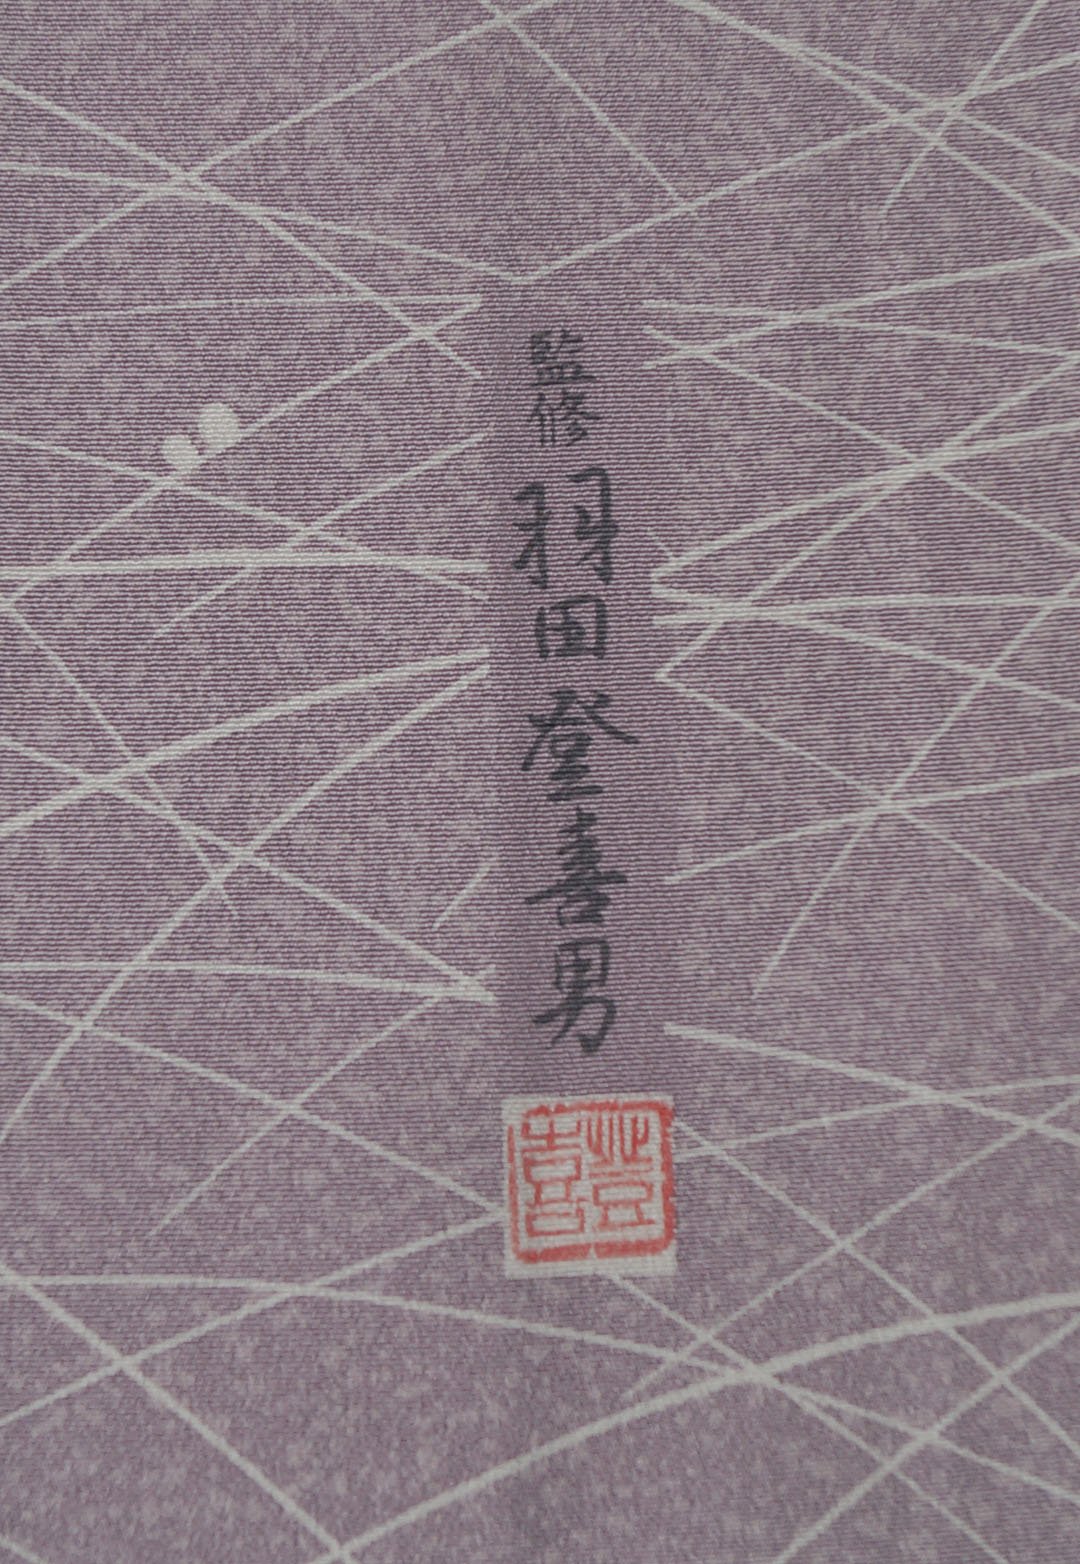 監修 羽田登喜男
登喜